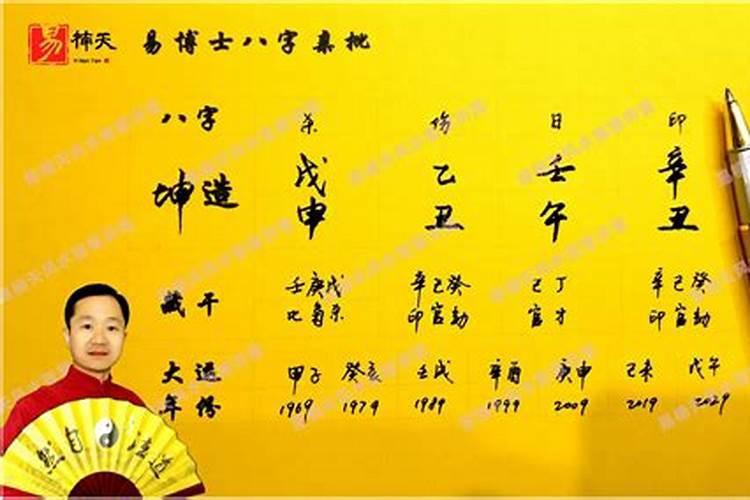 易 楠天 易博士八字来批
八字 杀 伤 日 印
坤造 戊 乙 壬 辛
申 丑 午 丑
藏干 壬庚戊 辛己癸 己丁 辛己癸
比枭杀 印官劫 官才 印官劫
大运 甲子 癸亥 壬戌 辛酉 庚申 己未 戊午
年份 1969 1979 1989 1999 2009 2019 2029
然自法道